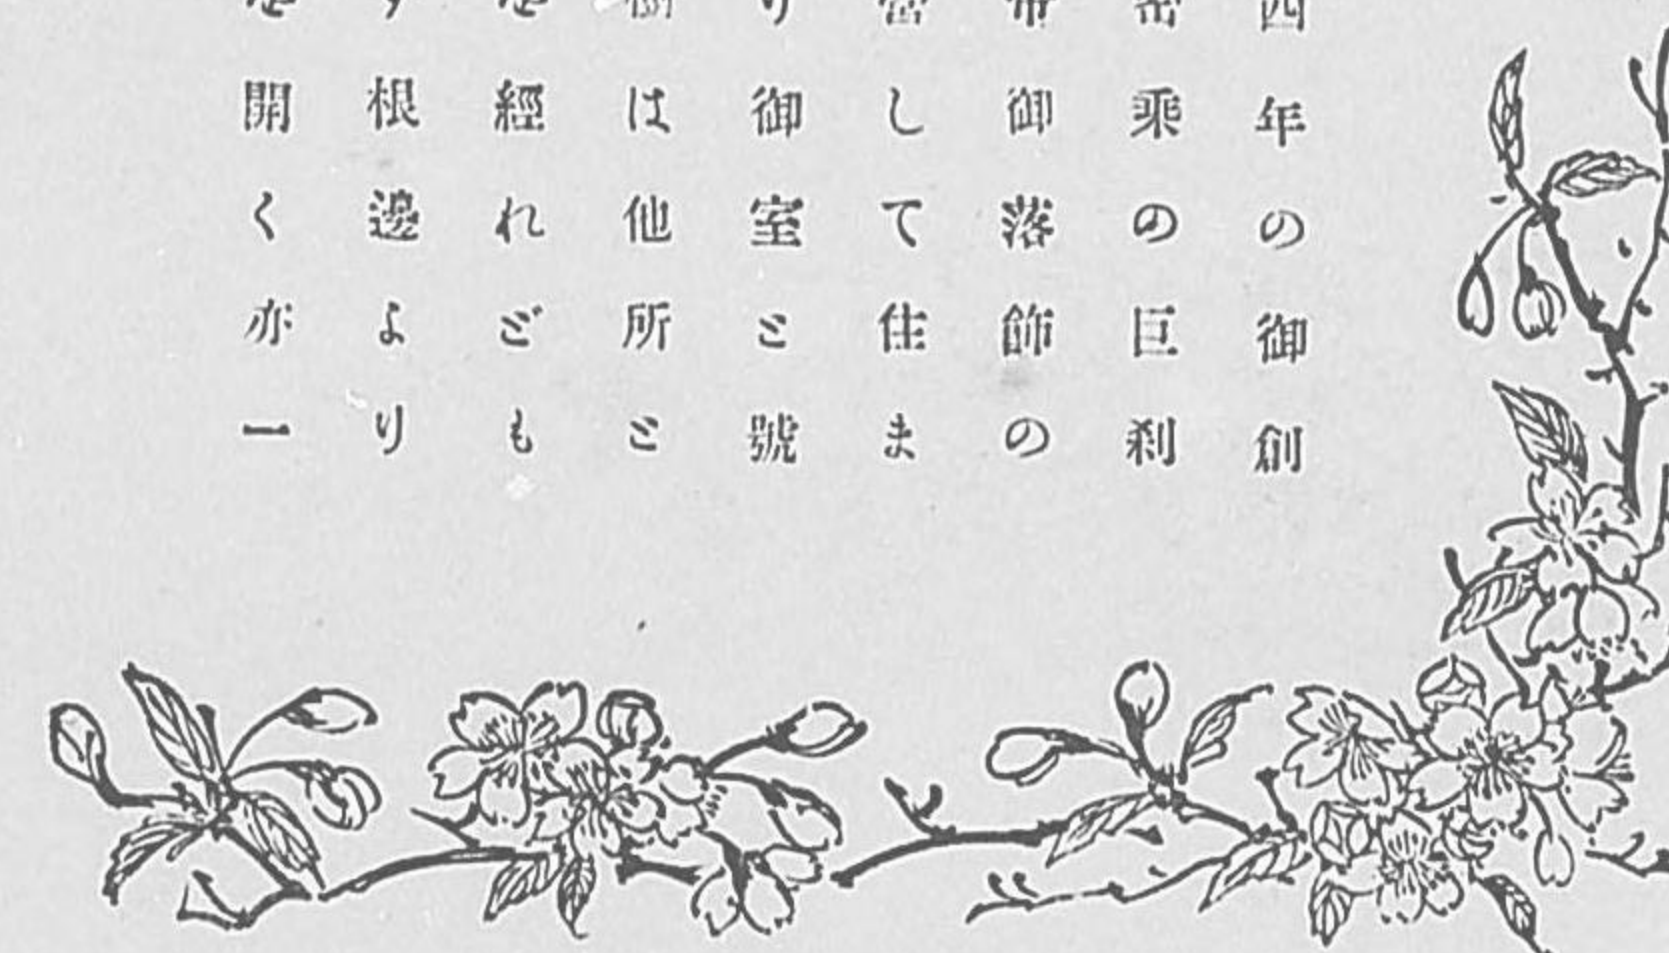 四年の御創
密乘の巨刹
帝御落飾の
營して住ま
り御室と號
樹は他所と
を經れども
す根邊より
を開く亦一